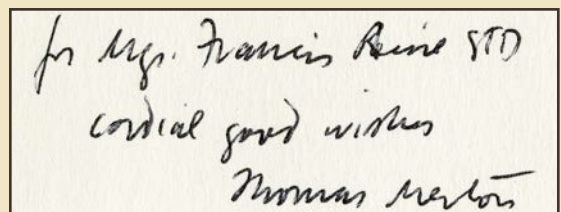 for Msgr. Francis Reine STD
cordial good wishes
Thomas Merton